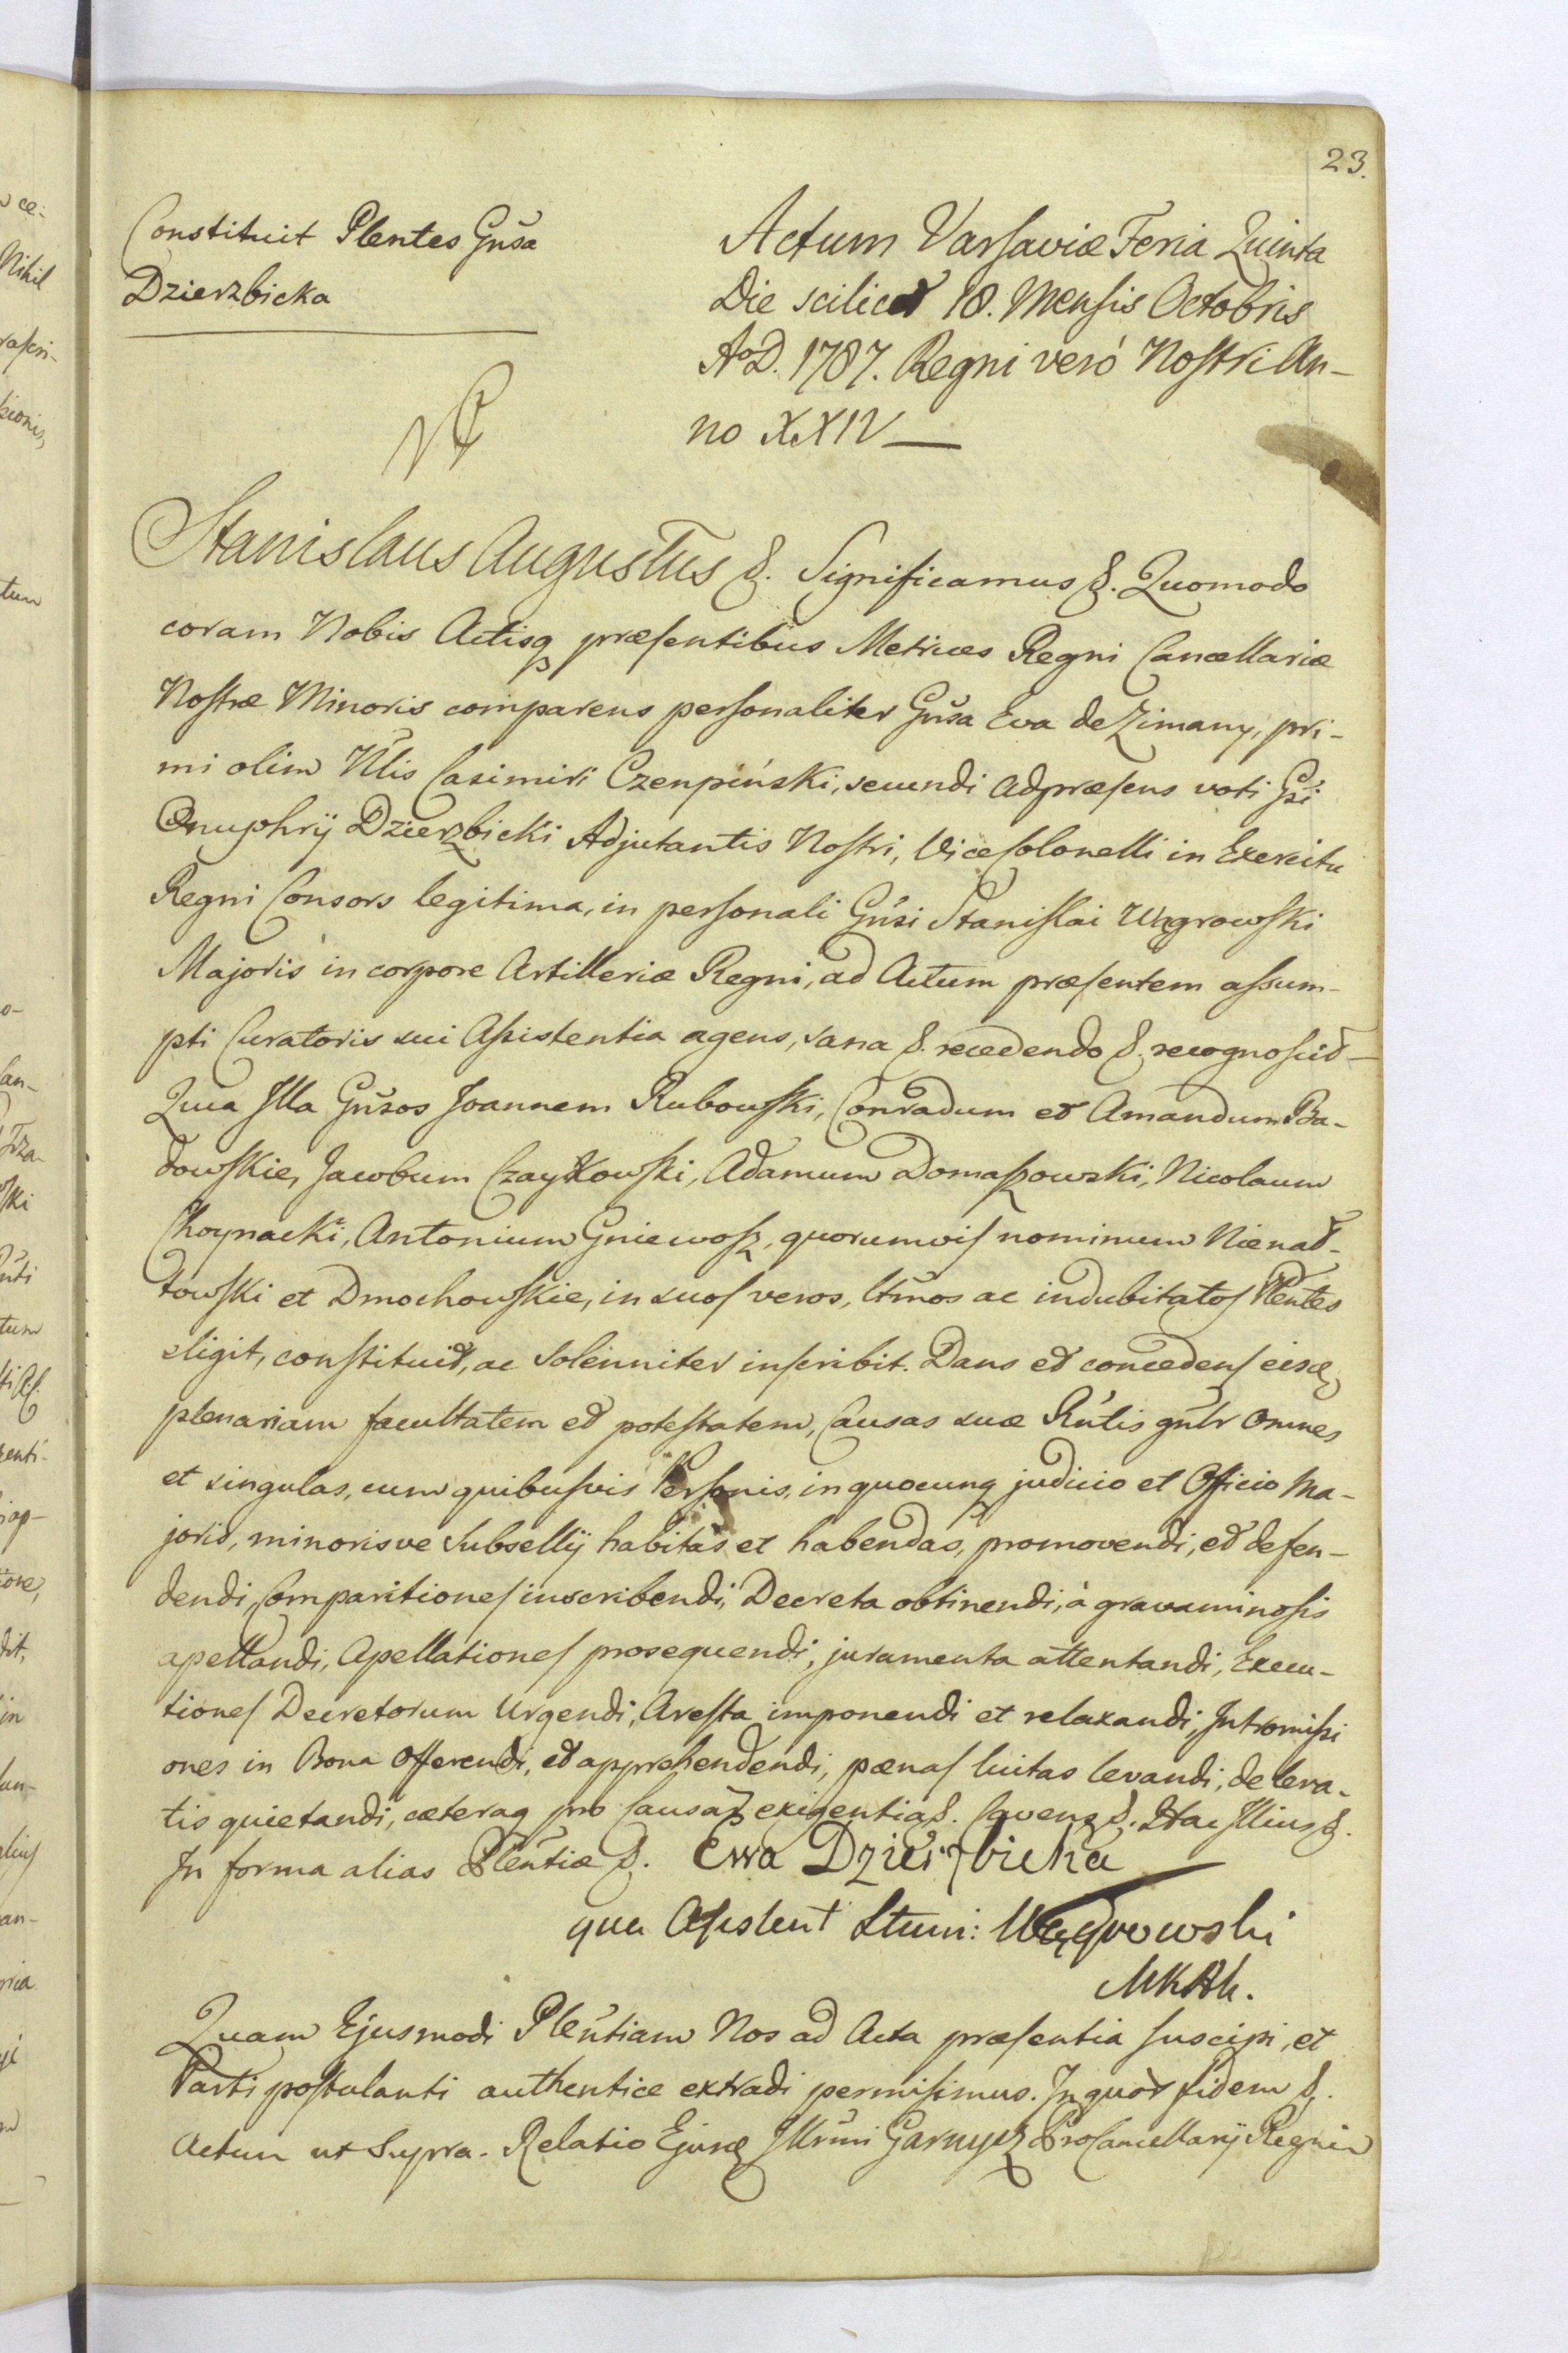 23.
Constituit Plentes Gnsa
Dzierzbicka
Actum Varsaviæ Feria Quinta
Die scilicet 18. Mensis Octobris
AoD. 1787. Regni veró Nostri An-
no XXIV
Stanislaus Augustus &. Significamus &. Quomodo
coram Nobis Actisq præsentibus Metrices Regni Cancellariæ
Nostræ Minoris comparens personaliter Gnsa Eva de Zimany, pri-
mi olim Nlis Casimiri Czenpiński, secundi adpræsens voti Gsi
Onuphrij Dzierzbicki Adjutantis Nostri, ViceColonelli in Exercitu
Regni Consors legitima, in personali Gnsi Stanislai Węgrowski
Majoris in corpore Artilleriæ Regni, ad Actum præsentem assum-
pti Curatoris sui Assistentia agens, sana &. recedendo &. recognoscit
Quia Illa Gnsos Joannem Rubowski, Conradum et Amandum Ba-
dowskie, Jacobum Czaykowski, Adamum Domaszowski, Nicolaum
Choynacki, Antonium Gniewosz, quorumvis nominum Nienał-
towski et Dmochowskie, in suos veros, Ltmos ac indubitatos Plentes
eligit, constituit, ac solenniter inscribit. Dans et concedens eisd
plenariam facultatem et potestatem, Causas suæ Rntis gnlr Omnes
et singulas, cum quibusvis Personis, in quocunq judicio et Officio Ma-
joris, minorisve Subsellij habitas et habendas, promovendi, et defen-
dendi, Comparitiones inscribendi, Decreta obtinendi, à gravaminosis
apellandi, Apellationes prosequendi, juramenta attentandi, Execu-
tiones Decretorum Urgendi, Aresta imponendi et relaxandi, Intromissi
ones in Bona Offerendi, et apprehendendi, pænas luitas levandi, de leva-
tis quietandi, cæteraq pro Causaz exigentia &. Cavens &. Hac Illius &.
In forma alias Plentiæ &. Ewa Dzierzbicka
qua Assistent Węgrowski
Quam Ejusmodi Plentiam Nos ad Acta præsentia suscipi, et
Parti postulanti authentice extradi permisimus. In quor fidem &.
Actum ut Supra. Relatio Ejusd Illrmi Garnysz ProCancellarij Regni